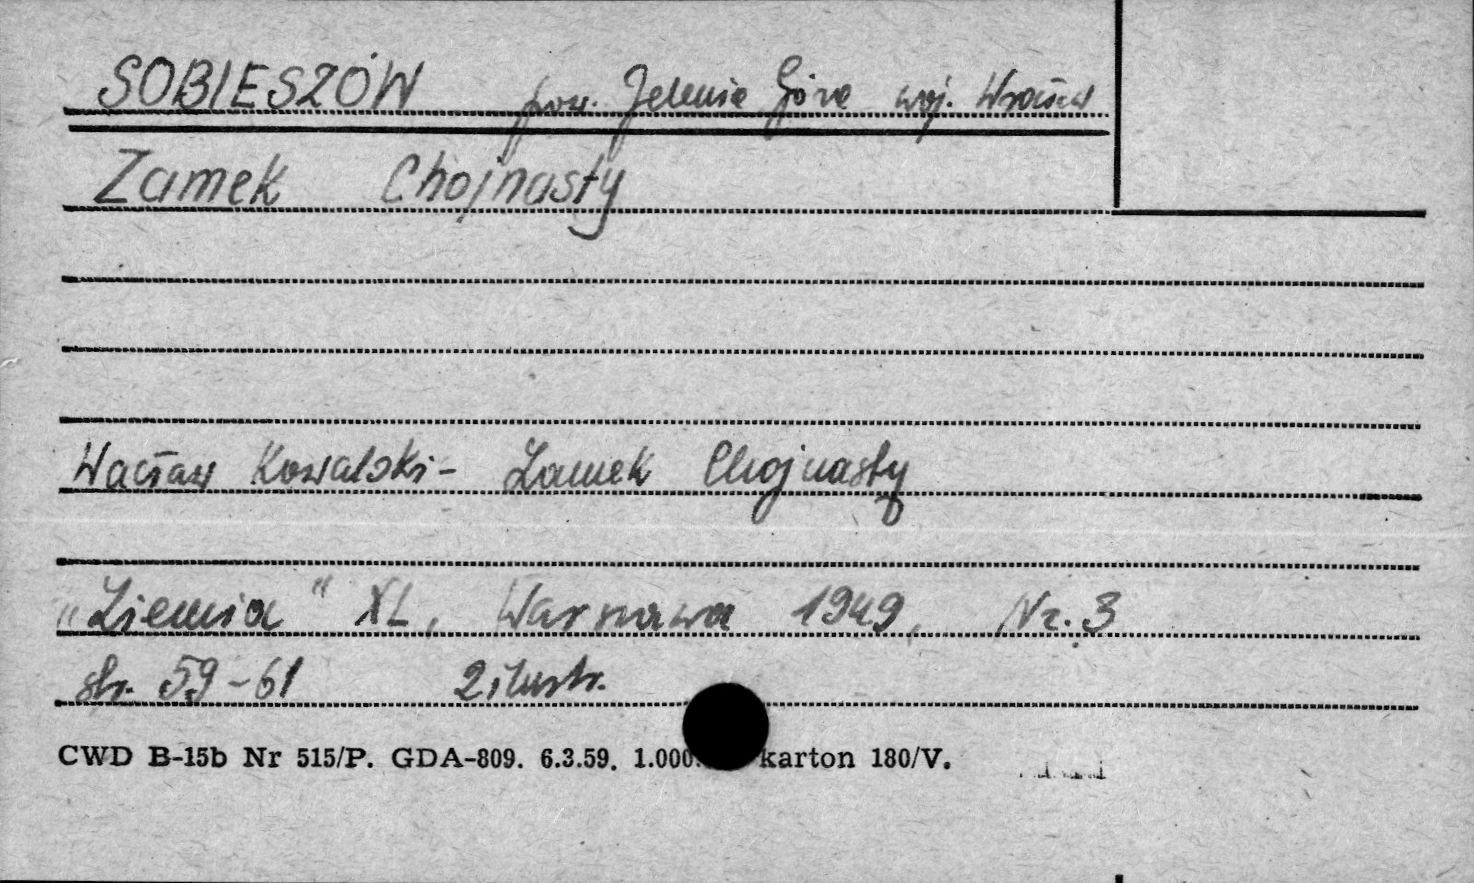 SOBIESZÓW pow. Jelenia Góra woj. Wrocław
Zamek Chojnasty
Wacław Kowalski - Zamek Chojnasty
„Ziemia" XL, Warszawa 1949, Nr. 3
str. 59-61 2 ilustr.
CWD B-15b Nr 515/P. GDA-809. 6.3.59. 1.000. karton 180/V.